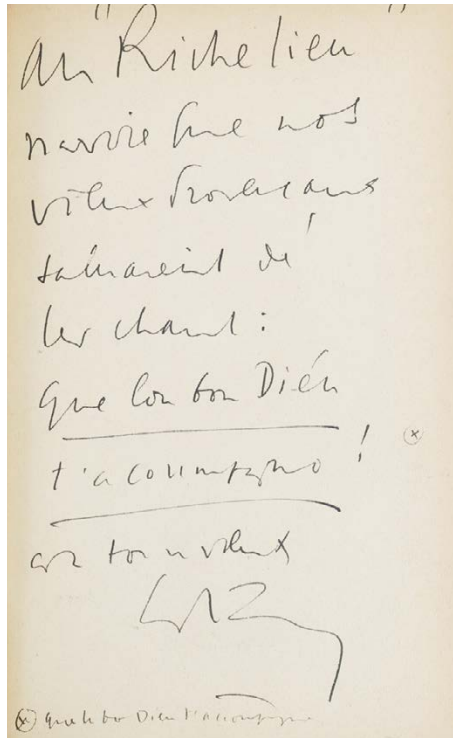 au "Richelieu"
navire que nos
vieux Provençaux
saluaient de
leur chant :
que lou bon Diéu
t'acoumpagno ! (x)
vieux
(x) que le bon Dieu t'accompagne